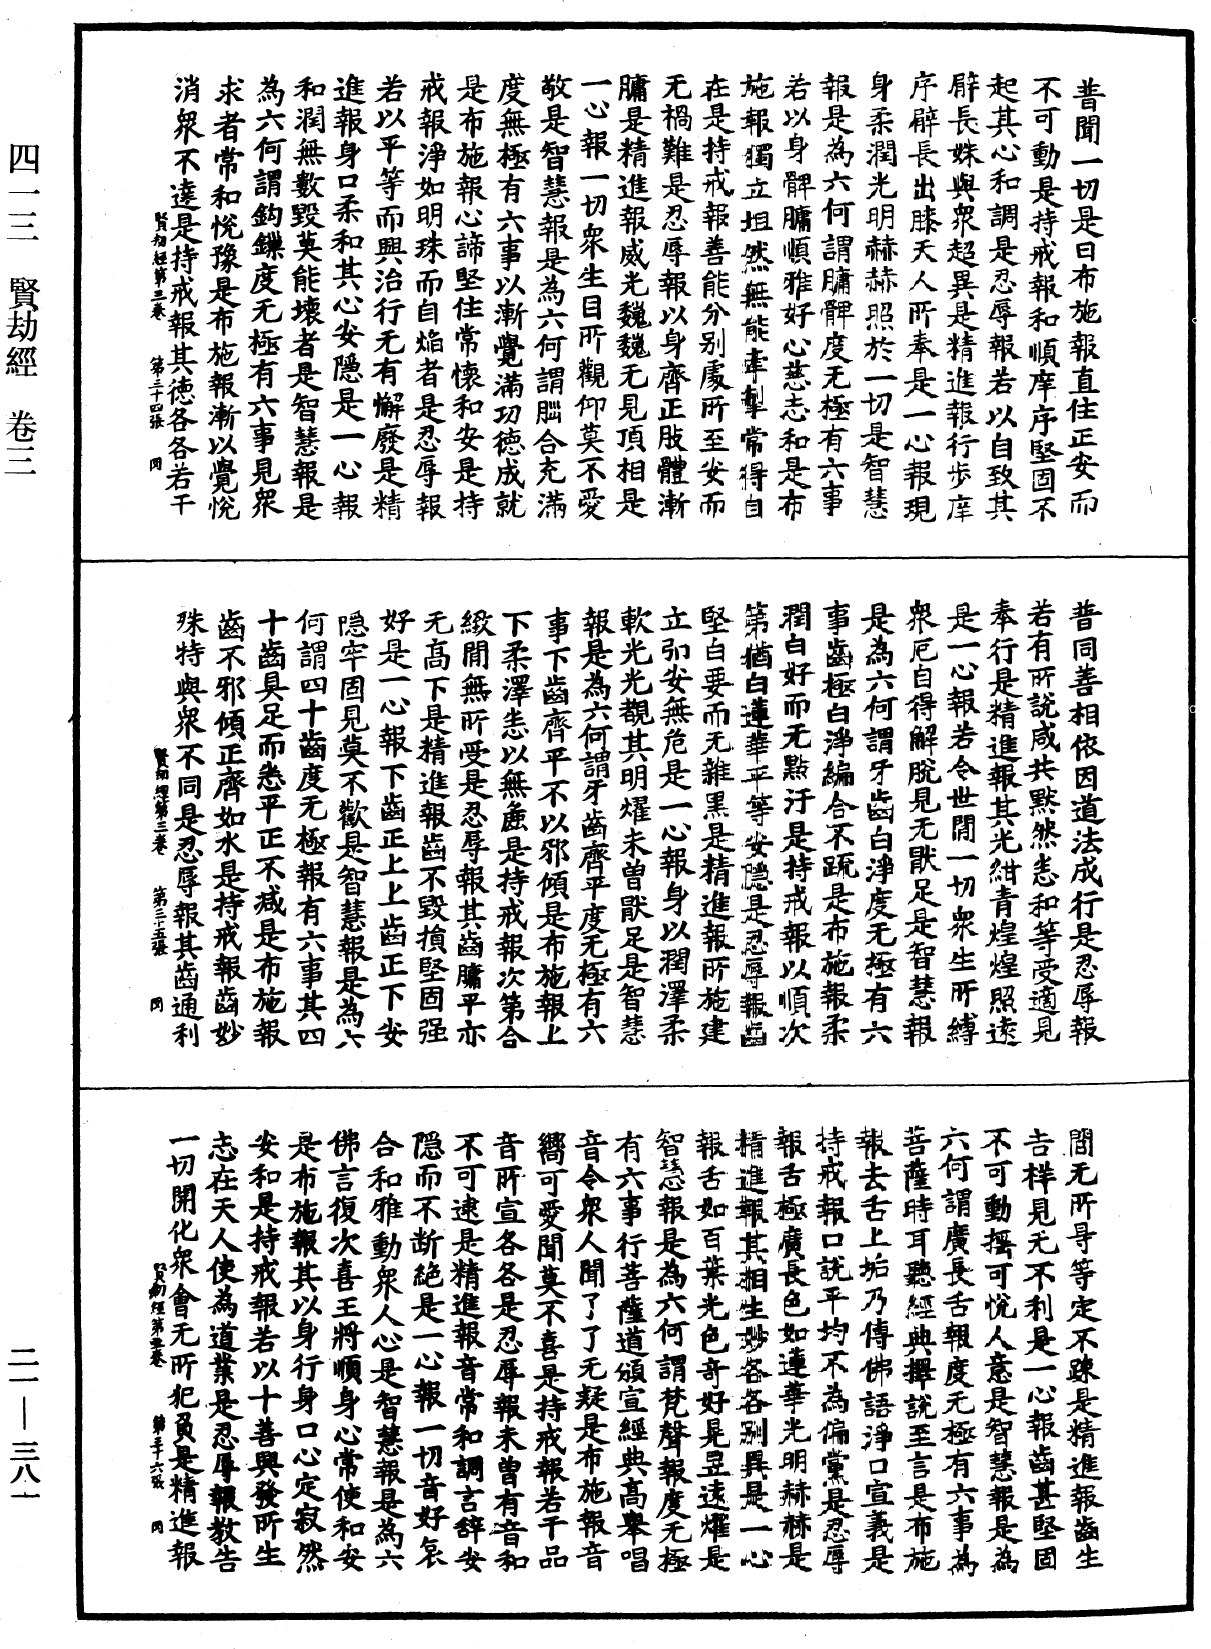 四一三　賢劫經　卷三
普聞一切是曰布施報直住正安而
不可動是持戒報和順庠序堅固不
起其心和調是忍辱報若以自致其
臂長姝與眾超異是精進報行步庠
序臂長出膝天人所奉是一心報現
身柔潤光明赫赫照於一切是智慧
報是為六何謂𦟛髀度无極有六事
若以身髀𦟛順雅好心慈志和是布
施報獨立坦然無能牽掣常得自
在是持戒報善能分別處所至安而
无禍難是忍辱報以身齊正肢體漸
𦟛是精進報威光巍巍无見頂相是
一心報一切眾生目所觀仰莫不愛
敬是智慧報是為六何謂𦛁合充滿
度無極有六事以漸覺滿功德成就
是布施報心諦堅住常懷和安是持
戒報淨如明珠而自焰者是忍辱報
若以平等而興治行无有懈廢是精
進報身口柔和其心安隱是一心報
和潤無數毀莫能壞者是智慧報是
為六何謂鉤鏁度无極有六事見眾
求者常和悅豫是布施報漸以覺悅
消眾不逺是持戒報其德各各若干
賢劫經第三卷　第三十四張　罔
普同善相依因道法成行是忍辱報
若有所說咸共默然悉和等受適見
奉行是精進報其光紺青煌煌照遠
是一心報若令世閒一切眾生所縛
眾厄自得解脫見无猒足是智慧報
是為六何謂牙齒白淨度无極有六
事齒極白淨編合不踈是布施報柔
潤白好而无點汙是持戒報以順次
第猶白蓮華平等安隱是忍辱報齒
堅白要而无雜黑是精進報所施建
立卬安無危是一心報身以潤澤柔
軟光光覩其明燿未曾猒足是智慧
報是為六何謂牙齒齊平度无極有六
事下齒齊平不以邪傾是布施報上
下柔澤悉以無麁是持戒報次第合
緻閒無所受是忍辱報其齒𦟛平亦
无高下是精進報齒不毀損堅固强
好是一心報下齒正上上齒正下安
隱牢固見莫不歡是智慧報是為六
何謂四十齒度无極報有六事其四
十齒具足而悉平正不減是布施報
齒不邪傾正齊如水是持戒報齒妙
殊特與眾不同是忍辱報其齒通利
賢劫經第三卷　第三十五張　罔
閒无所㝵等定不踈是精進報齒生
吉祥見无不利是一心報齒甚堅固
不可動搖可悅人意是智慧報是為
六何謂廣長舌報度无極有六事為
菩薩時耳聽經典擇說至言是布施
報去舌上垢乃傳佛語淨口宣義是
持戒報口說平均不為偏黨是忍辱
報舌極廣長色如蓮華光明赫赫是
精進報其相生妙各各別異是一心
報舌如百葉光色奇好晃昱遠燿是
智慧報是為六何謂梵聲報度无極
有六事行菩薩道頒宣經典高舉唱
音令眾人聞了了无疑是布施報音
嚮可愛聞莫不喜是持戒報若干品
音所宣各各是忍辱報未曾有音和
不可逮是精進報音常和調言辭安
隱而不斷絕是一心報一切音好哀
合和雅動眾人心是智慧報是為六
佛言復次喜王將順身心常使和安
是布施報其以身行身口心定寂然
安和是持戒報若以十善興發所生
志在天人使為道業是忍辱報教告
一切開化眾會无所犯負是精進報
賢劫經第三卷　第三十六張　罔
二一—三八一